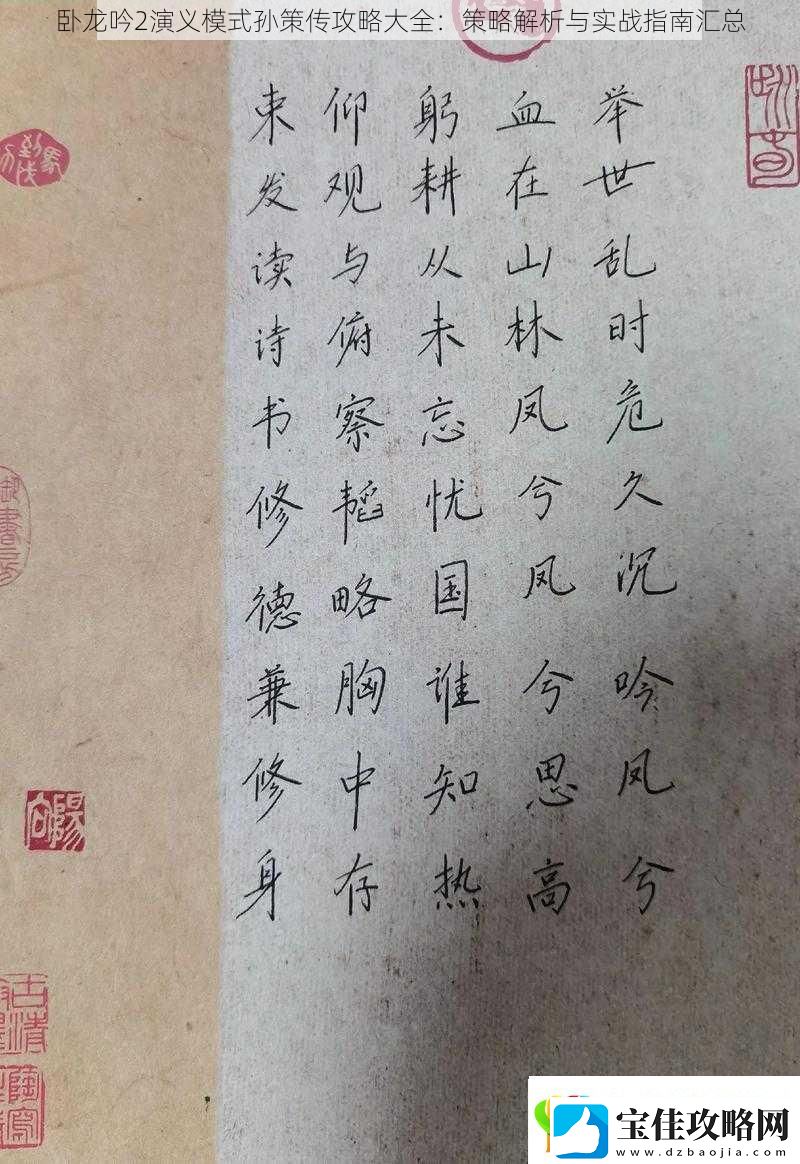 卧龙吟2演义模式孙策传攻略大全：策略解析与实战指南汇总
束发读诗书修德兼修身
仰观与俯察韬略胸中存
躬耕从未忘忧国谁知热
血在山林凤兮凤兮思高
举世乱时危久沉吟凤兮
宝佳攻略网
www.dzbaojia.com